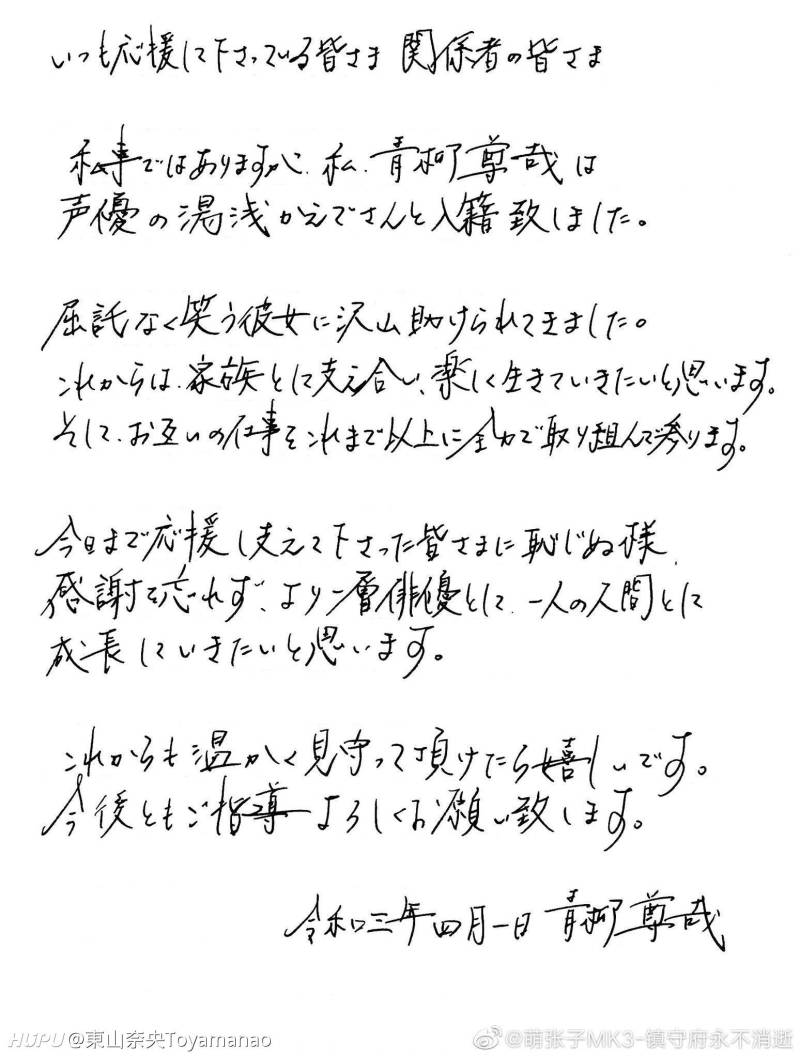 いつも応援して下さっている皆さま 関係者の皆さま
私事ではありますが、私、青柳尊哉は
声優の湯浅かえでさんと入籍致しました。
屈託なく笑う彼女に沢山助けられてきました。
これからは、家族として支え合い、楽しく生きていきたいと思います。
そして、お互いの仕事をこれまで以上に全力で取り組んで参ります。
今日まで応援し支えて下さった皆さまに恥じぬ様、
感謝を忘れず、より一層俳優として、一人の人間として
成長していきたいと思います。
これからも温かく見守って頂けたら嬉しいです。
今後ともご指導よろしくお願い致します。
令和三年四月一日 青柳尊哉
HUPU @東山奈央Toyamanao
@萌张子MK3-镇守府永不消逝